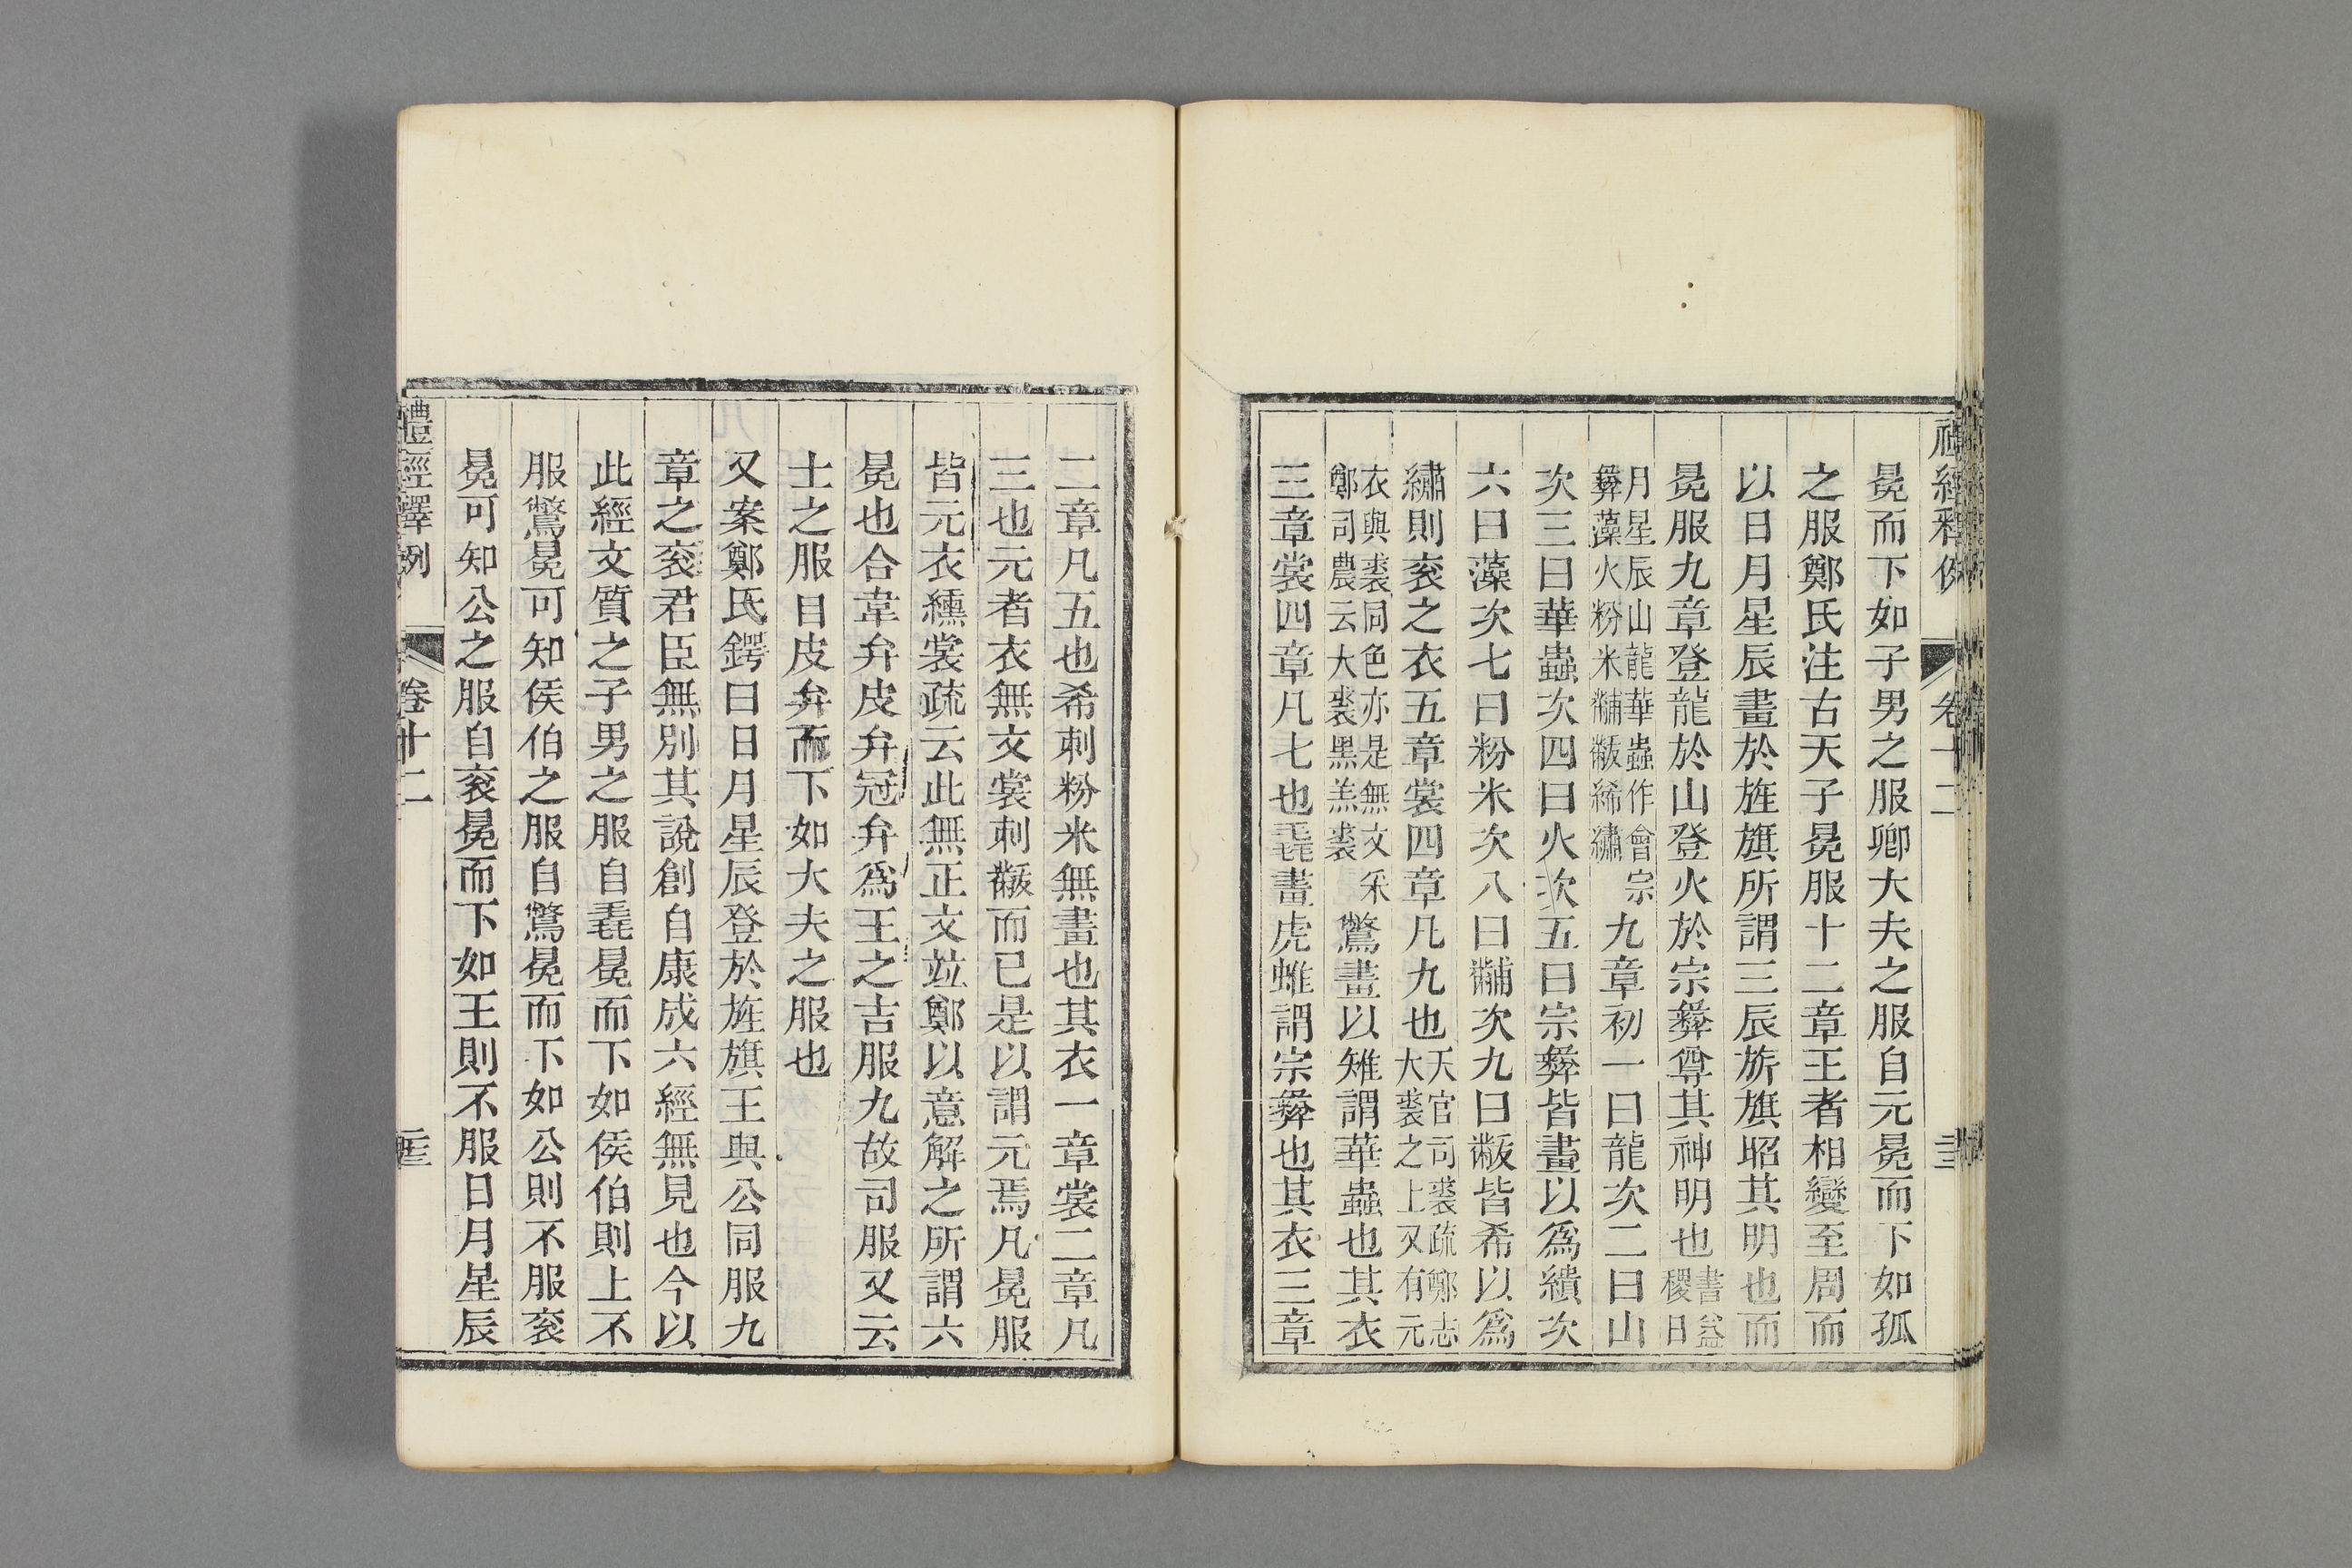 冕而下如子男之服卿大夫之服自元冕而下如孤
之服鄭氏注古天子冕服十二章王者相變至周而
以日月星辰畫於旌旗所謂三辰旂旗昭其明也而
冕服九章登龍於山登火於宗彝尊其神明也書益稷日
月星辰山龍華蟲作會宗彝藻火粉米黼黻絺繡九章初一曰龍次二曰山
次三曰華蟲次四曰火次五曰宗彝皆畫以為繢次
六曰藻次七曰粉米次八曰黼次九曰黻皆希以為
繡則衮之衣五章裳四章凡九也天官司裘疏鄭志大裘之上又有元
衣與裘同色亦是無文采鄭司農云大裘黑羔裘鷩畫以雉謂華蟲也其衣
三章裳四章凡七也毳畫虎蜼謂宗彝也其衣三章
二章凡五也希刺粉米無畫也其衣一章裳二章凡
三也元者衣無文裳刺黻而已是以謂元焉凡冕服
皆元衣纁裳疏云此無正文竝鄭以意解之所謂六
冕也合韋弁皮弁冠弁爲王之吉服九故司服又云
士之服自皮弁而下如大夫之服也
又案鄭氏鍔曰日月星辰登於旌旗王與公同服九
章之衮君臣無別其說創自康成六經無見也今以
此經文質之子男之服自毳冕而下如侯伯則上不
服鷩冕可知侯伯之服自鷩冕而下如公則不服衮
冕可知公之服自衮冕而下如王則不服日月星辰
禮經釋例
卷十二